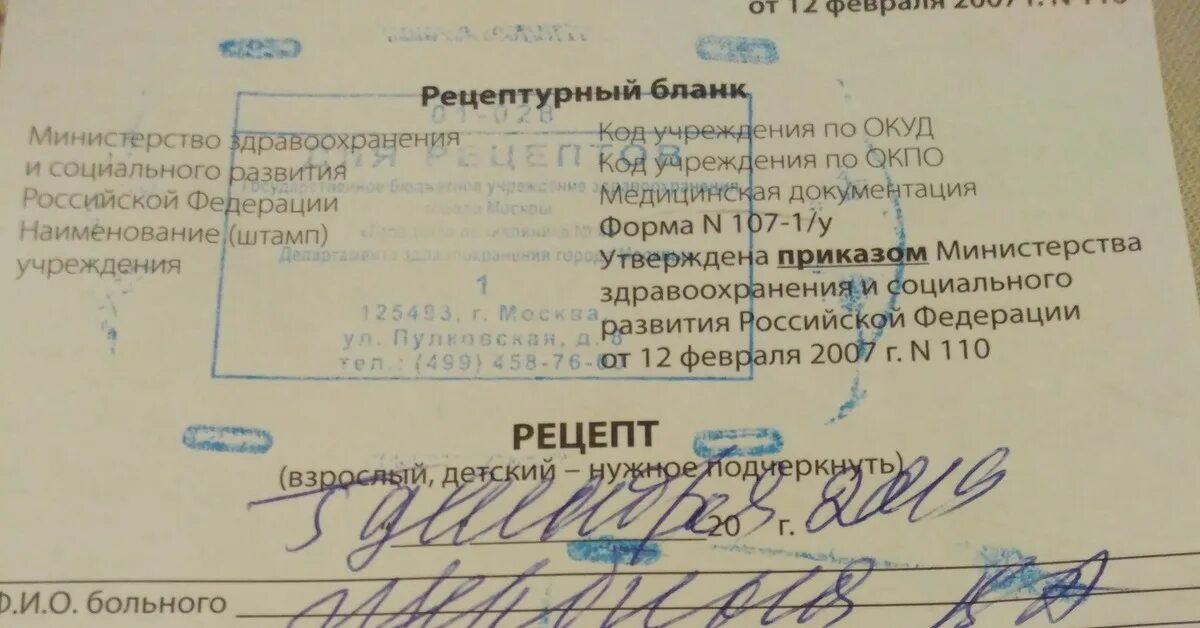 от 12 февраля 2007 г. N 110
Рецептурный бланк
Министерство здравоохранения
и социального развития
Российской Федерации
Наименование (штамп)
учреждения
Код учреждения по ОКУД
Код учреждения по ОКПО
Медицинская документация
Форма N 107-1/у
Утверждена приказом Министерства
здравоохранения и социального
развития Российской Федерации
от 12 февраля 2007 г. N 110
01-028
ДЛЯ РЕЦЕПТОВ
Государственное бюджетное учреждение здравоохранения
города Москвы
Департамента здравоохранения города Москвы
1
125493, г. Москва,
ул. Пулковская, д. 8
тел.: (499) 458-76-6
РЕЦЕПТ
(взрослый, детский – нужное подчеркнуть)
20 г. 2019
Ф.И.О. больного